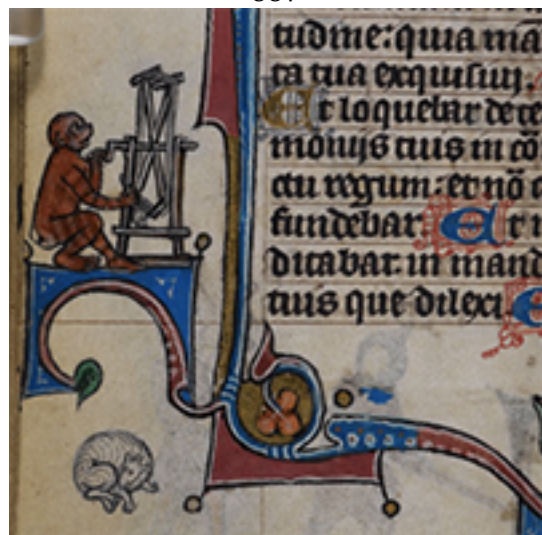 tudine: quia mā
ta tua exquisiui.
Et loquebar de te
monijs tuis in cō
ctu regum: et nō c
fundebar Et
ditabar in mand
tuis que dilexi